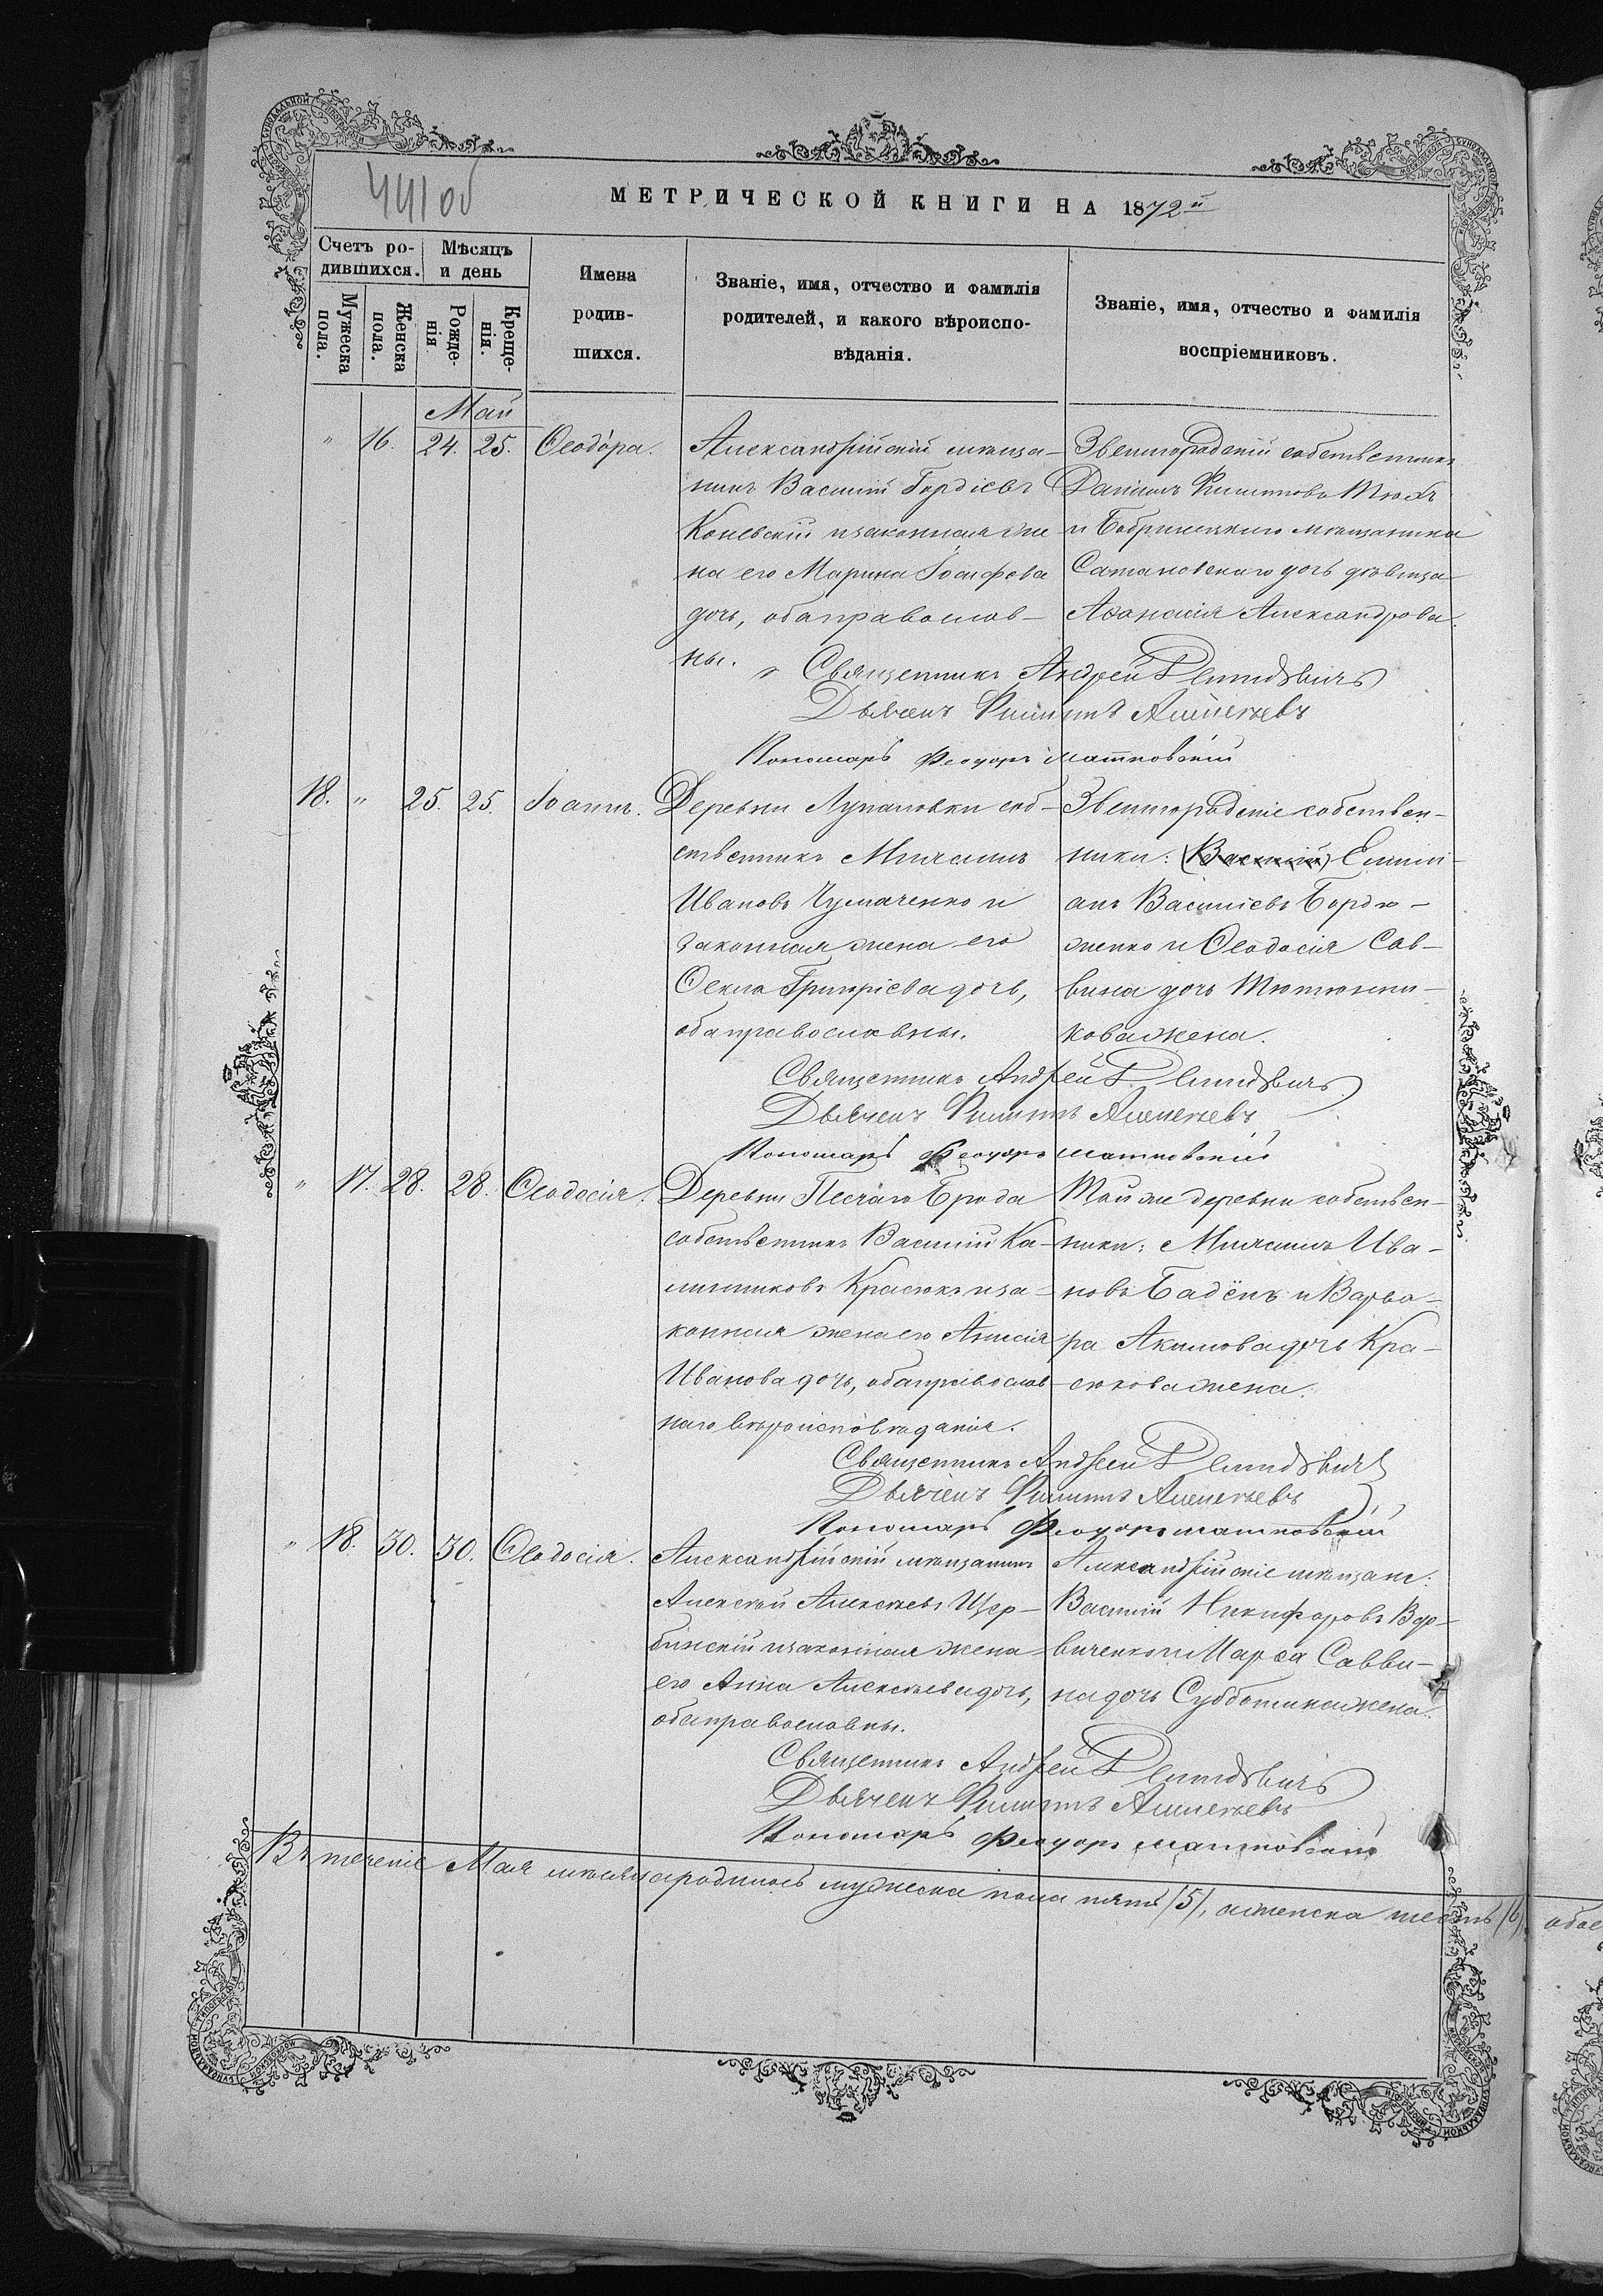 441 об
МЕТРИЧЕСКОЙ КНИГИ НА 1872й
Счетъ ро-
дившихся.
Мѣсяцъ
и день
Мужеска
пола.
Женска
пола.
Рожде-
нія
Креще-
нія.
Имена
родив-
шихся.
Званіе, имя, отчество и фамилія
родителей, и какого вѣроиспо-
вѣданія.
Званіе, имя, отчество и фамилія
воспріемниковъ.
Май
" 16. 24. 25. Ѳеодора.
Александрійскій мѣща-
нинъ Василій Гордіевъ
Коневскій и законная же
на его Марина Іосифова
дочь, оба православ-
ны.
Звенигородскій собственникъ
Даніилъ Филиповъ
и Бобринецкаго мѣщанина
Сатановскаго дочь дѣвица
Аѳанасія Александрова.
Священникъ Андрей
Дьячекъ Филиппъ Алексѣевъ
Пономарь Феодоръ Матковскій
18. " 25. 25. Іоаннъ.
Деревни Лупановки соб-
ственникъ Михаилъ
Ивановъ Чумаченко и
законная жена его
Ѳекла Григоріева дочь,
оба православны.
Звенигородскіе собствен-
ники: (Василій) Емили-
анъ Василіевъ Бордю-
женко и Ѳеодосія Сав-
вина дочь Тютюнни-
кова жена.
Священникъ Андрей
Дьячекъ Филиппъ Алексѣевъ
Пономарь Феодоръ Матковскій
" 17. 28. 28. Ѳеодосія.
Деревни Песчаго Брода
собственникъ Василій Ка-
линниковъ Красюкъ и за-
конная жена его Анисія
Иванова дочь, оба православ-
наго вѣроисповѣданія.
Той же деревни собствен-
ники: Михаилъ Ива-
новъ Бадёнъ и Варва-
ра Акимова дочь Кра-
сюкова жена.
Священникъ Андрей
Дьячекъ Филиппъ Алексѣевъ
Пономарь Феодоръ Матковскій
" 18. 30. 30. Ѳеодосія.
Александрійскій мѣщанинъ
Алексѣй Алексѣевъ Щер-
бинскій и законная жена
его Анна Алексѣева дочь,
оба православны.
Александрійскіе мѣщане:
Василій Никифоровъ Вдо-
виченко и Марѳа Савви-
на дочь Субботина жена.
Священникъ Андрей
Дьячекъ Филиппъ Алексѣевъ
Пономарь Феодоръ Матковскій
Въ теченіе Мая мѣсяца родилось мужеска пола пять (5), а женска шесть (6), обое